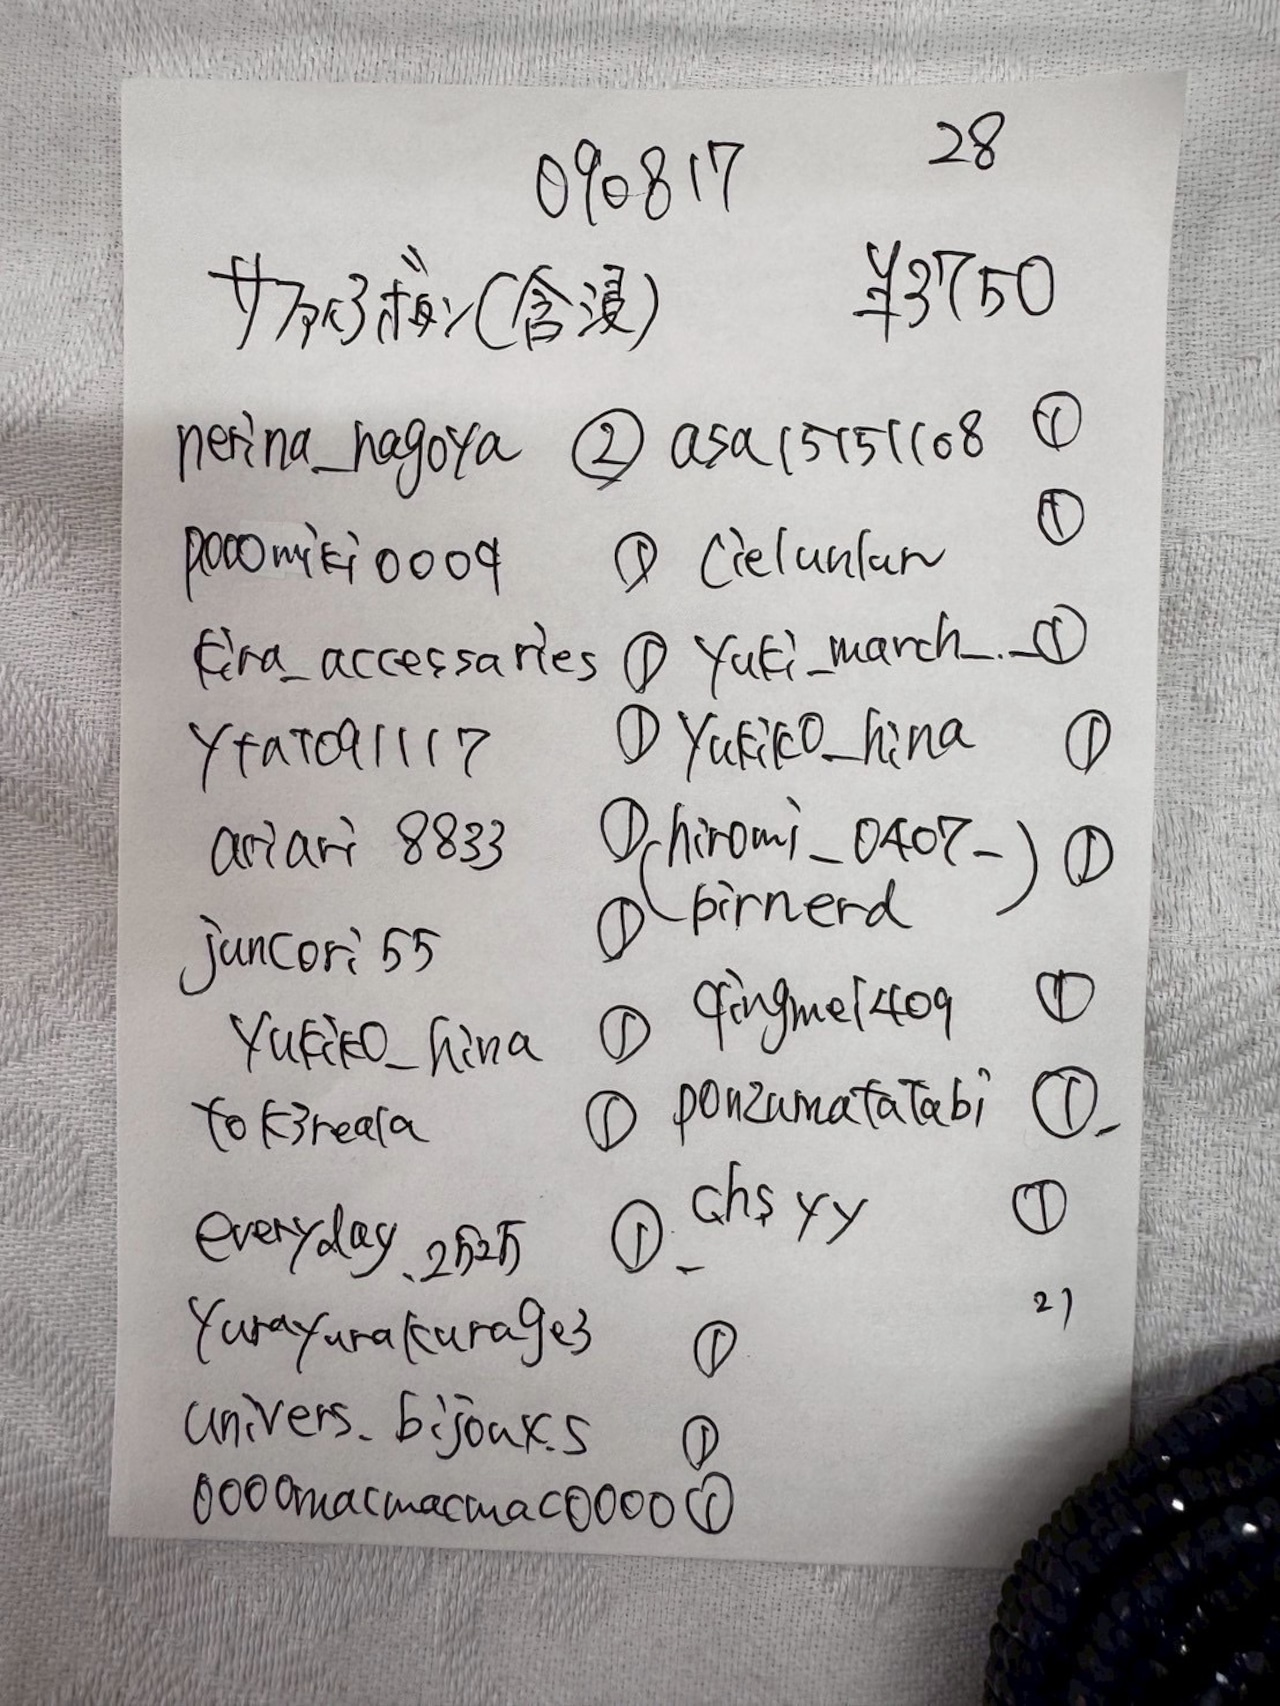 28
090817
サファイヤ3ボタン(含浸) ¥3750
nerina_nagoya ②
pooomiki0009 ①
kira_accessaries ①
ytat091117 ①
ariari 8833 ①
juncori55 ①
yukiko_hina ①
tok3reala ①
everyday_2525 ①
yurayurakurage3 ①
univers._bijoux.s ①
0000macmacmac0000 ①
asa15151108 ①
cielunlun ①
yuki_march_._ ①
yukiko_hina ①
(hiromi_0407_) ①
birnerd
qingmei409 ①
ponzumatatabi ①
chsyy ①
21